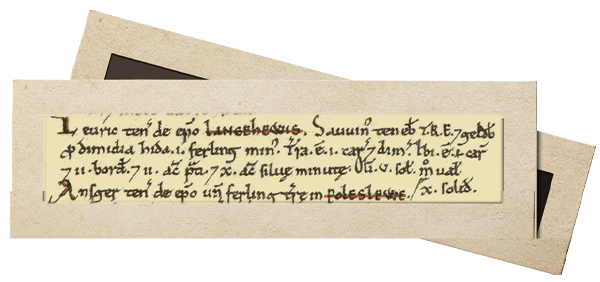 Leuric ten' de ep̄o LANGEHEWIS. Sauuin' teneb̄ T.R.E. ⁊ geldb̄
ꝓ dimidia hida. i. ferling min'. Tr̄a. ē. i. car̄ ⁊ dim'. Ibi. ē. i. car̄
⁊ ii. bord̄. ⁊ ii. ac̄ p̄ti. ⁊ x. ac̄ siluę minutę. Oli'. v. sol'. m̊ ual'.
Ansger ten' de ep̄o un' ferling tr̄e in POLESLEWE. x. solid'.